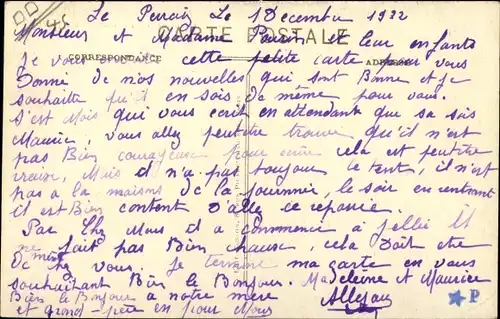 Le Perray Le 1 Decembre 1922
CARTE POSTALE
Monsieur et Madame et leur enfants
CORRESPONDANCE
ADRESSE
Je vous cette petite carte vous
Donné de nos nouvelles qui sont Bonne et je
souhaite qu'il en sois de même pour vous.
s'est Mois qui vous ecrit en attendant que sa sois
Maurice, vous allez peutetre trouver qu'il n'est
pas Bien courageux pour ecrire cela est peutetre
vreuse, Mais il n'a pas toujour le tent, il n'est
pas a la maisons de la journnée, le soir en rentrant
il est Bien content d'aller ce reposse.
Par Chez Nous il a commencé a jellée Il
ne fait pas Bien chause, cela Doit etre
de même chez vous. Je termine ma carte en vous
souhaitant Bien le Bonjour. Madeleine et Maurice
Bien le Bonjour a notre mere
et grand-pere en pour Nous
P